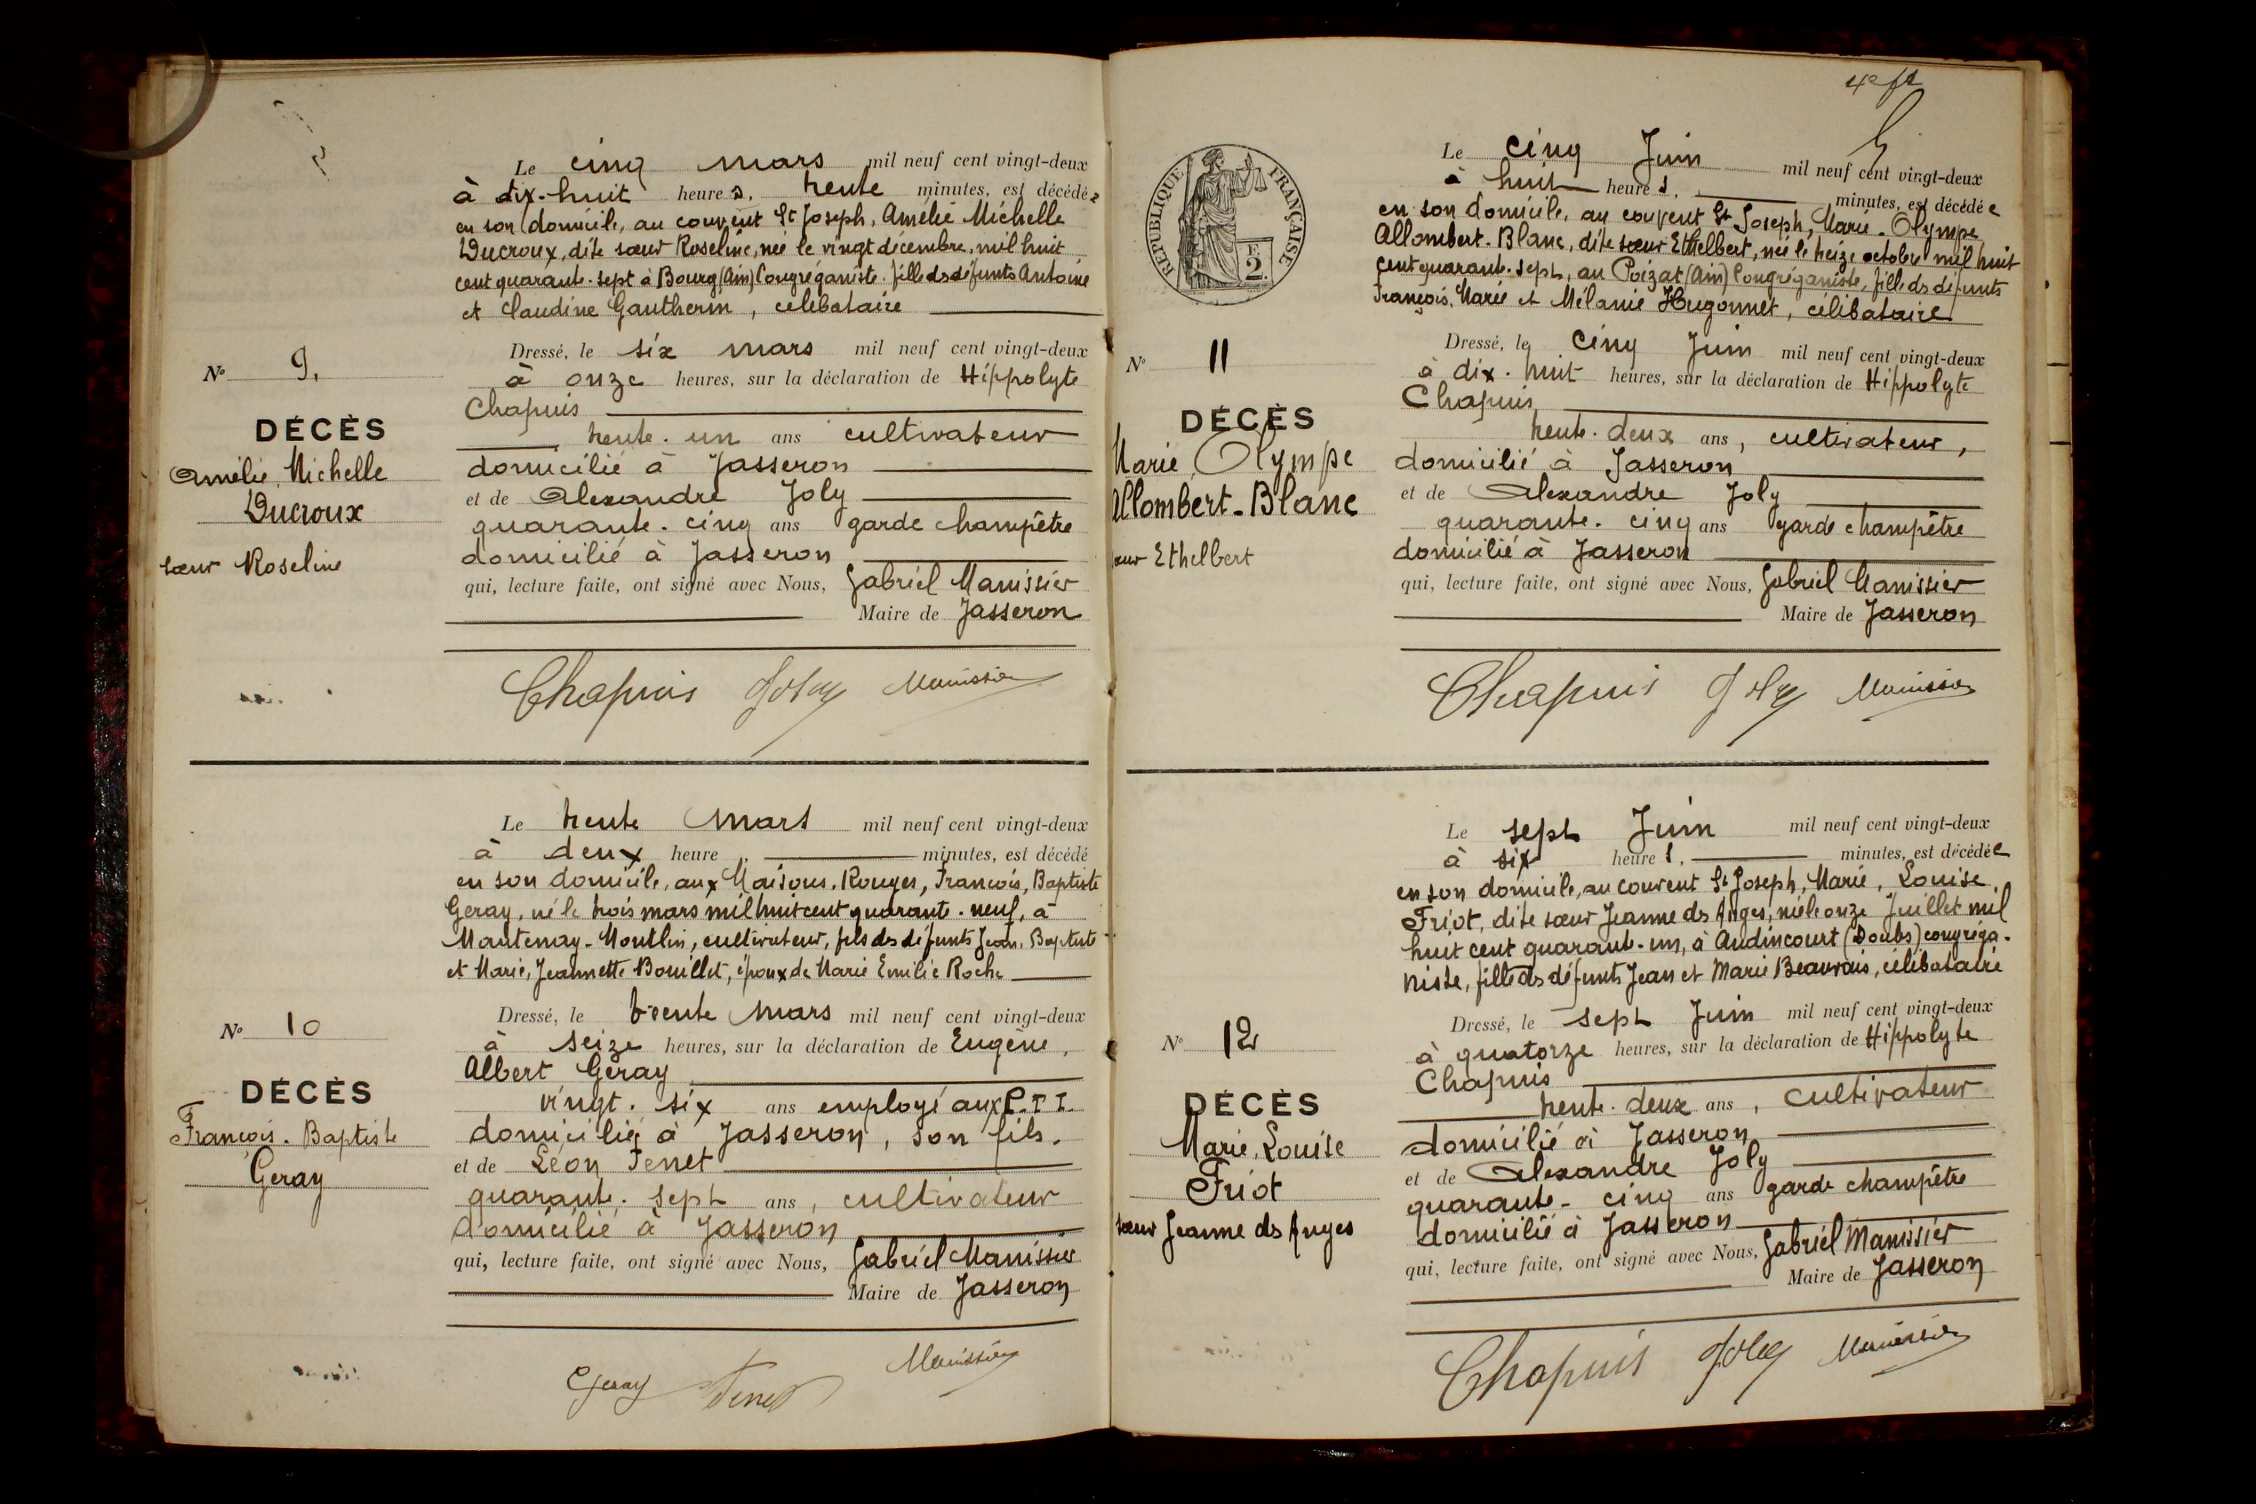 Le cinq mars mil neuf cent vingt-deux
à dix-huit heures, trente minutes, est décédée
en son domicile, au couvent St Joseph, Amélie Michelle
Ducroux, dite sœur Roseline, née le vingt décembre, mil huit
cent quarante-sept à Bourg (Ain) Congréganiste, fille des défunts Antoine
et Claudine Gautherin, célibataire
N° 9.
DÉCÈS
Amélie, Michelle
Ducroux
sœur Roseline
Dressé, le six mars mil neuf cent vingt-deux
à onze heures, sur la déclaration de Hippolyte
Chapuis
trente-un ans cultivateur
domicilié à Jasseron
et de Alexandre Joly
quarante-cinq ans garde champêtre
domicilié à Jasseron
qui, lecture faite, ont signé avec Nous, Gabriel Manissier
Maire de Jasseron
Chapuis Joly Manissier
Le trente Mars mil neuf cent vingt-deux
à deux heure minutes, est décédé
en son domicile, aux Maisons-Rouges, François, Baptiste
Geray, né le trois mars mil huit cent quarante-neuf, à
Mantenay-Montlin, cultivateur, fils des défunts Jean, Baptiste
et Marie, Jeannette Bouillet, époux de Marie Emilie Roche
N° 10
DÉCÈS
François-Baptiste
Geray
Dressé, le trente Mars mil neuf cent vingt-deux
à seize heures, sur la déclaration de Eugène,
Albert Geray
vingt-six ans employé aux P.T.T.
domicilié à Jasseron, son fils.
et de Léon Tenet
quarante-sept ans, cultivateur
domicilié à Jasseron
qui, lecture faite, ont signé avec Nous, Gabriel Manissier
Maire de Jasseron
Geray Tenet Manissier
4e ft
RÉPUBLIQUE FRANÇAISE
F.
2
Le cinq Juin mil neuf cent vingt-deux
à huit heures, minutes, est décédée
en son domicile, au couvent St Joseph, Marie-Olympe
Allombert-Blanc, dite sœur Ethelbert, née le treize octobre mil huit
cent quarante-sept, au Poizat (Ain) Congréganiste, fille des défunts
François, Marie et Mélanie Hugonnet, célibataire
N° 11
DÉCÈS
Marie, Olympe
Allombert-Blanc
sœur Ethelbert
Dressé, le cinq Juin mil neuf cent vingt-deux
à dix-huit heures, sur la déclaration de Hippolyte
Chapuis
trente-deux ans, cultivateur,
domicilié à Jasseron
et de Alexandre Joly
quarante-cinq ans garde champêtre
domicilié à Jasseron
qui, lecture faite, ont signé avec Nous, Gabriel Manissier
Maire de Jasseron
Chapuis Joly Manissier
Le sept Juin mil neuf cent vingt-deux
à six heures, minutes, est décédée
en son domicile, au couvent St Joseph, Marie, Louise,
Friot, dite sœur Jeanne des Anges, née le onze Juillet mil
huit cent quarante-un, à Audincourt (Doubs) congréga-
niste, fille des défunts Jean et Marie Beauvais, célibataire
N° 12
DÉCÈS
Marie, Louise
Friot
sœur Jeanne des Anges
Dressé, le sept Juin mil neuf cent vingt-deux
à quatorze heures, sur la déclaration de Hippolyte
Chapuis
trente-deux ans, cultivateur
domicilié à Jasseron
et de Alexandre Joly
quarante-cinq ans garde champêtre
domicilié à Jasseron
qui, lecture faite, ont signé avec Nous, Gabriel Manissier
Maire de Jasseron
Chapuis Joly Manissier